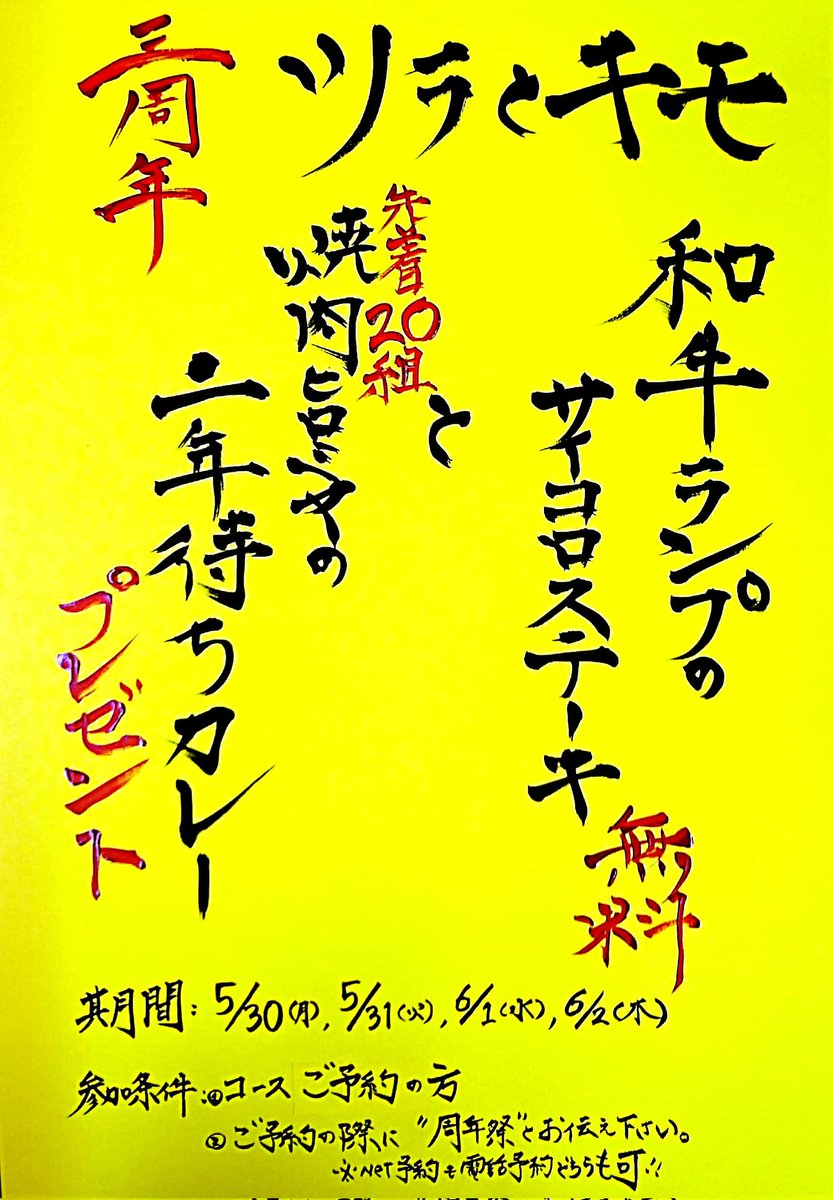 ツラとキモ
三周年
和牛ランプの
サイコロステーキ
無料
と
先着20組
焼肉ヒロミヤの
二年待ちカレー
プレゼント
期間:5/30(月),5/31(火),6/1(水),6/2(木)
参加条件:①コースご予約の方
②ご予約の際に"周年祭"とお伝え下さい。
※Net予約も電話予約どちらも可!!